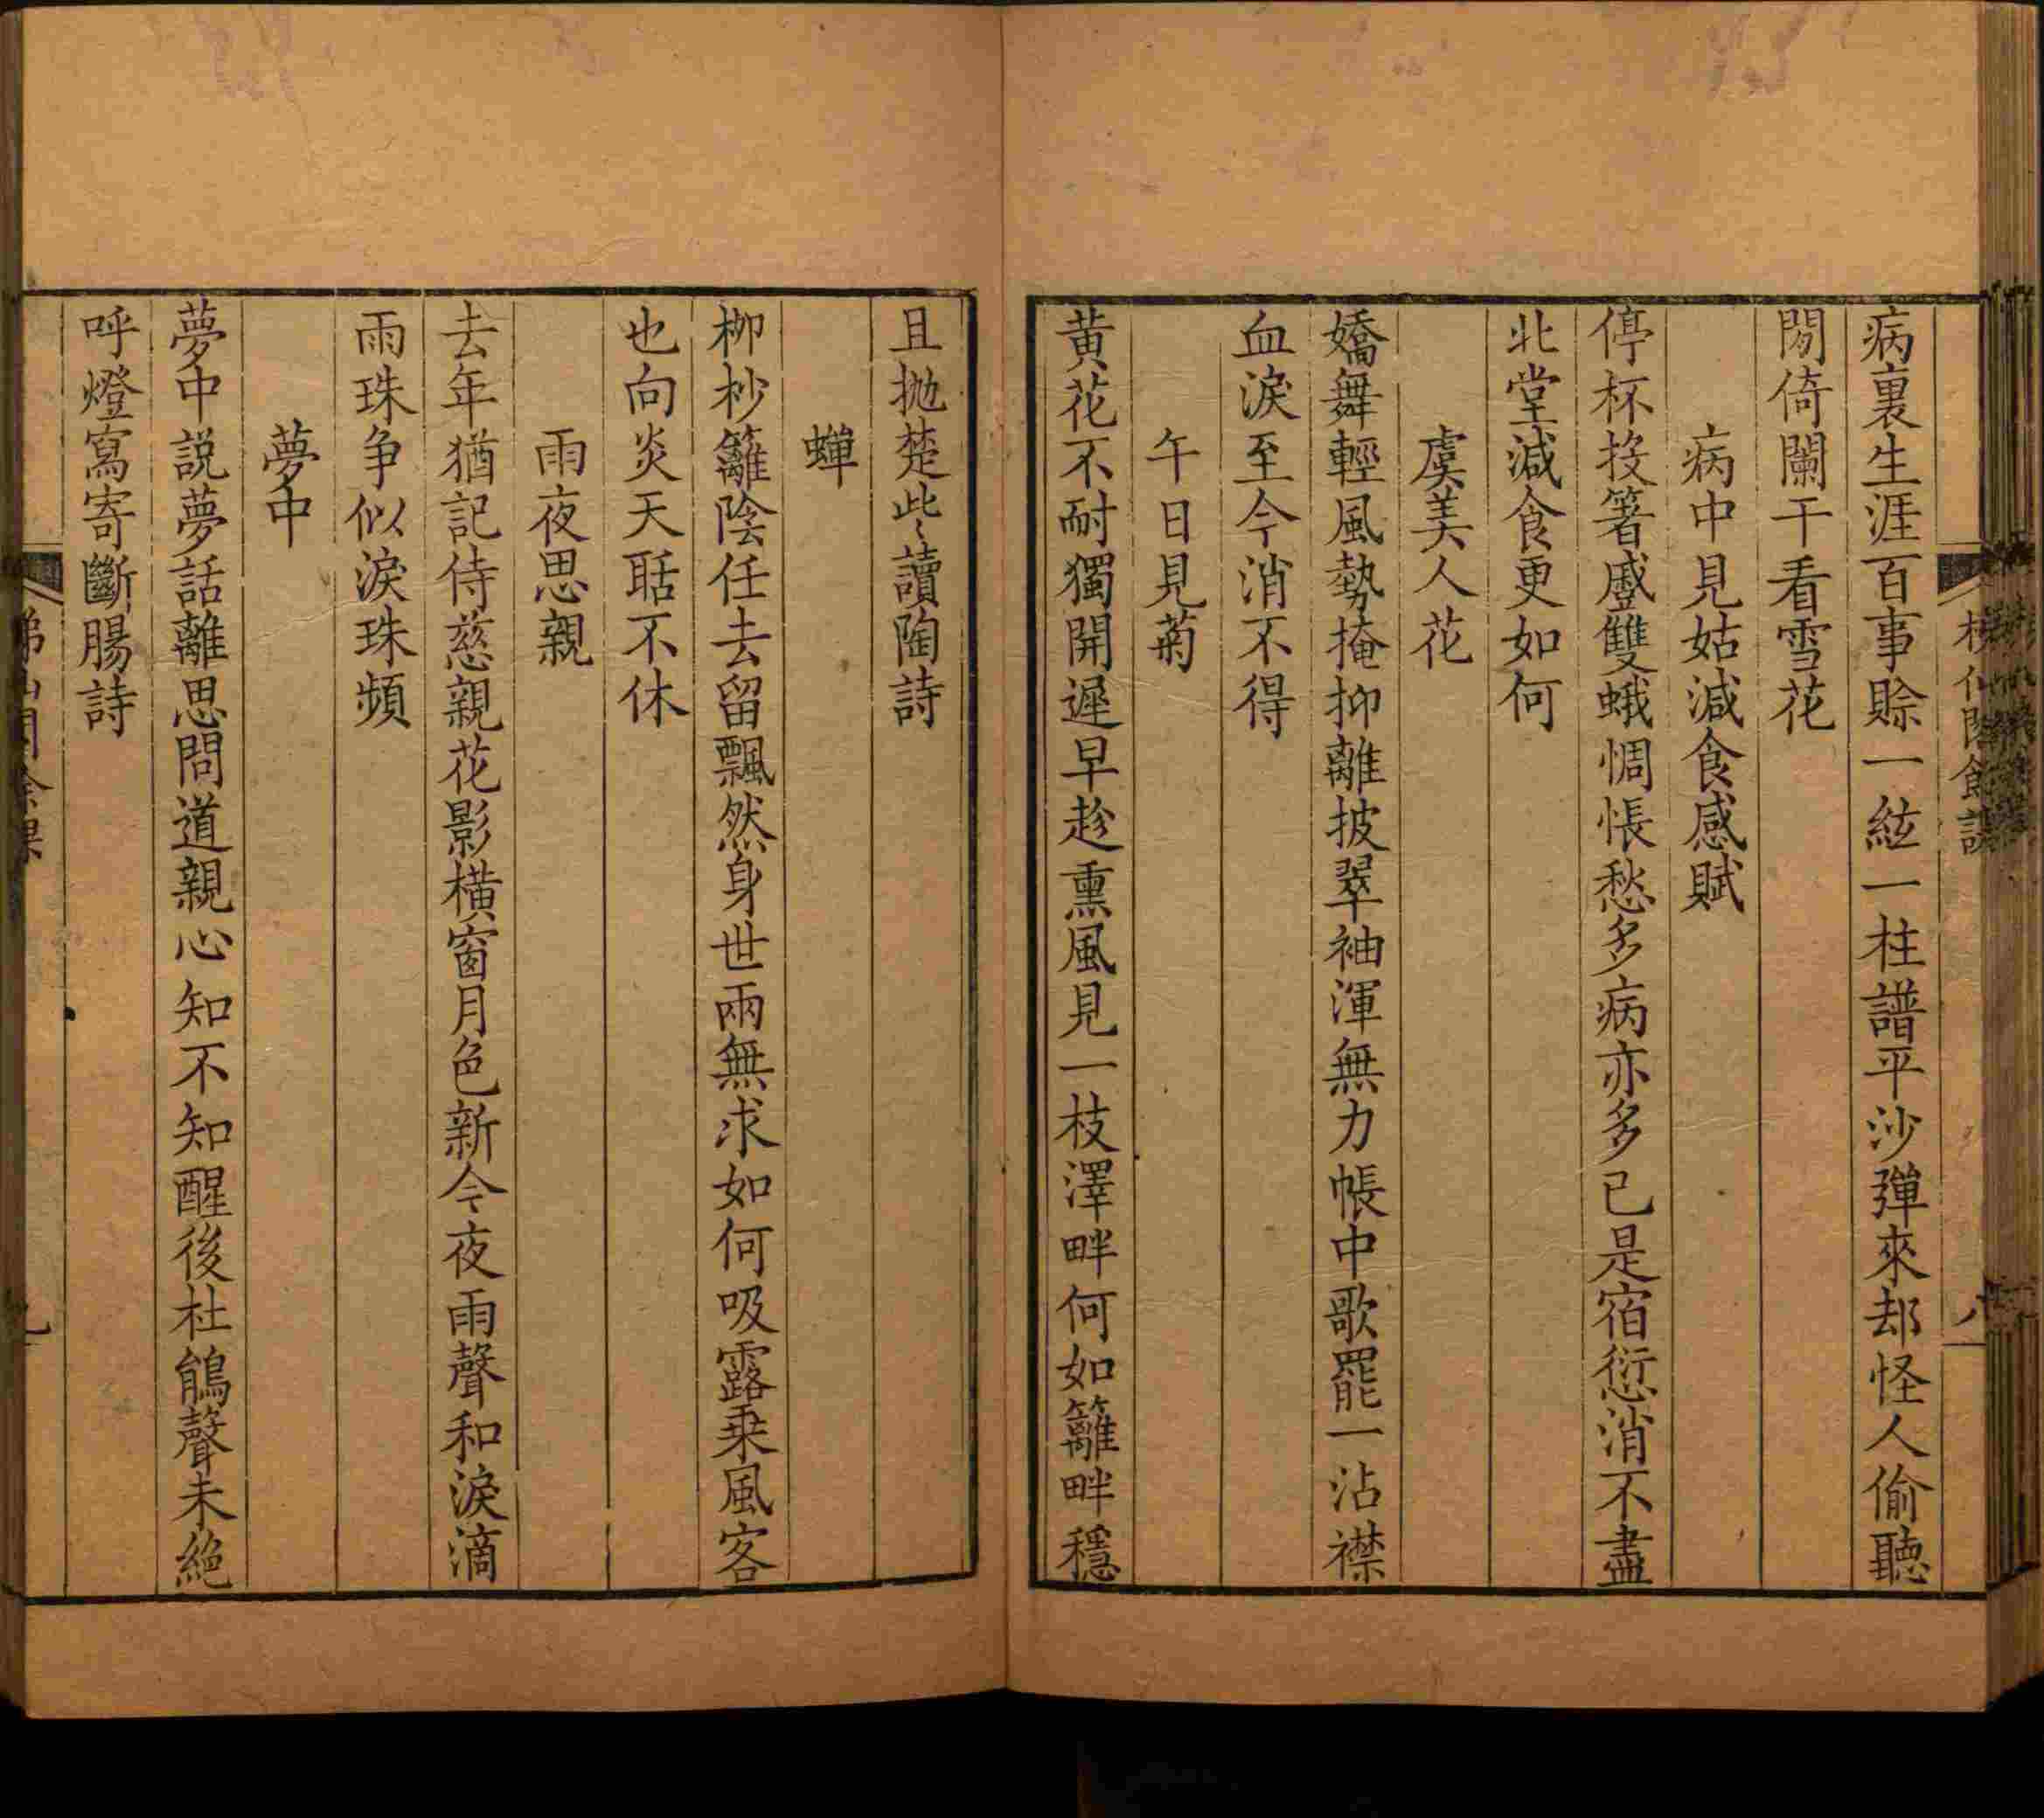 病裏生涯百事賒一絃一柱譜平沙彈來却怪人偷聽
閒倚闌干看雪花
病中見姑減食感賦
停杯投箸蹙雙蛾惆悵愁多病亦多已是宿愆消不盡
北堂減食更如何
虞美人花
嬌舞輕風勢掩抑離披翠袖渾無力帳中歌罷一沾襟
血淚至今消不得
午日見菊
黄花不耐獨開遲早趁熏風見一枝澤畔何如籬畔穩
且拋楚此讀陶詩
蟬
栁杪籬陰任去留飄然身世兩無求如何吸露乗風客
也向炎天聒不休
雨夜思親
去年猶記侍慈親花影橫窗月色新今夜雨聲和淚滴
雨珠争似淚珠頻
夢中
夢中説夢話離思問道親心知不知醒後杜鵑聲未絶
呼燈寫寄斷腸詩
梯仙閣餘課